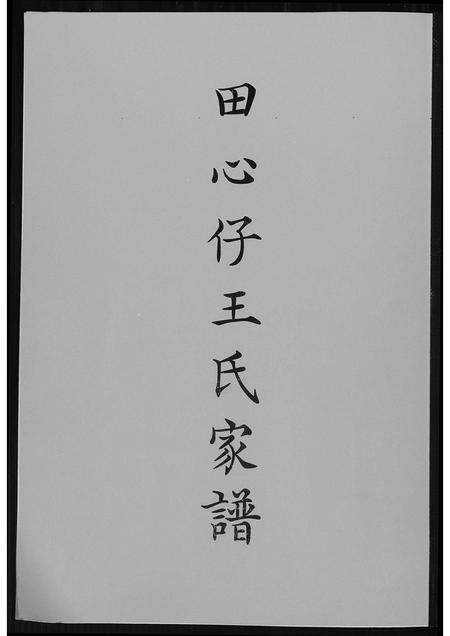 田心仔王氏家譜